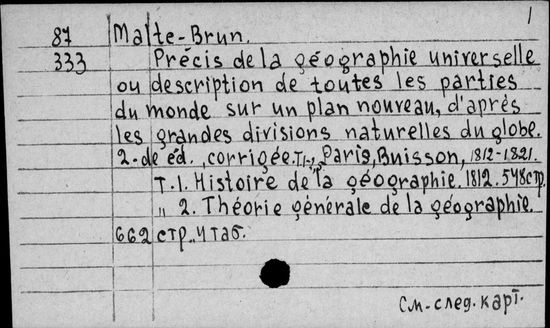 1
87 Malte-Brun.
333 Précis de la géographie universelle
ou description de toutes les parties
du monde sur un plan nouveau, d'après
les grandes divisions naturelles du globe.
2-de éd., corrigée. T.1-, Paris, Buisson, 1812-1821.
T.1. Histoire de la géographie. 1812. 548 стр.
" 2. Théorie générale de la géographie.
662 стр., 4 таб.
См. след. карт.